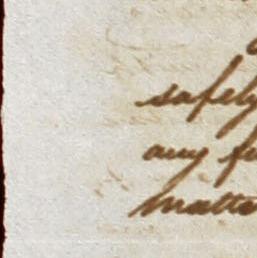 safely
any fu
matte